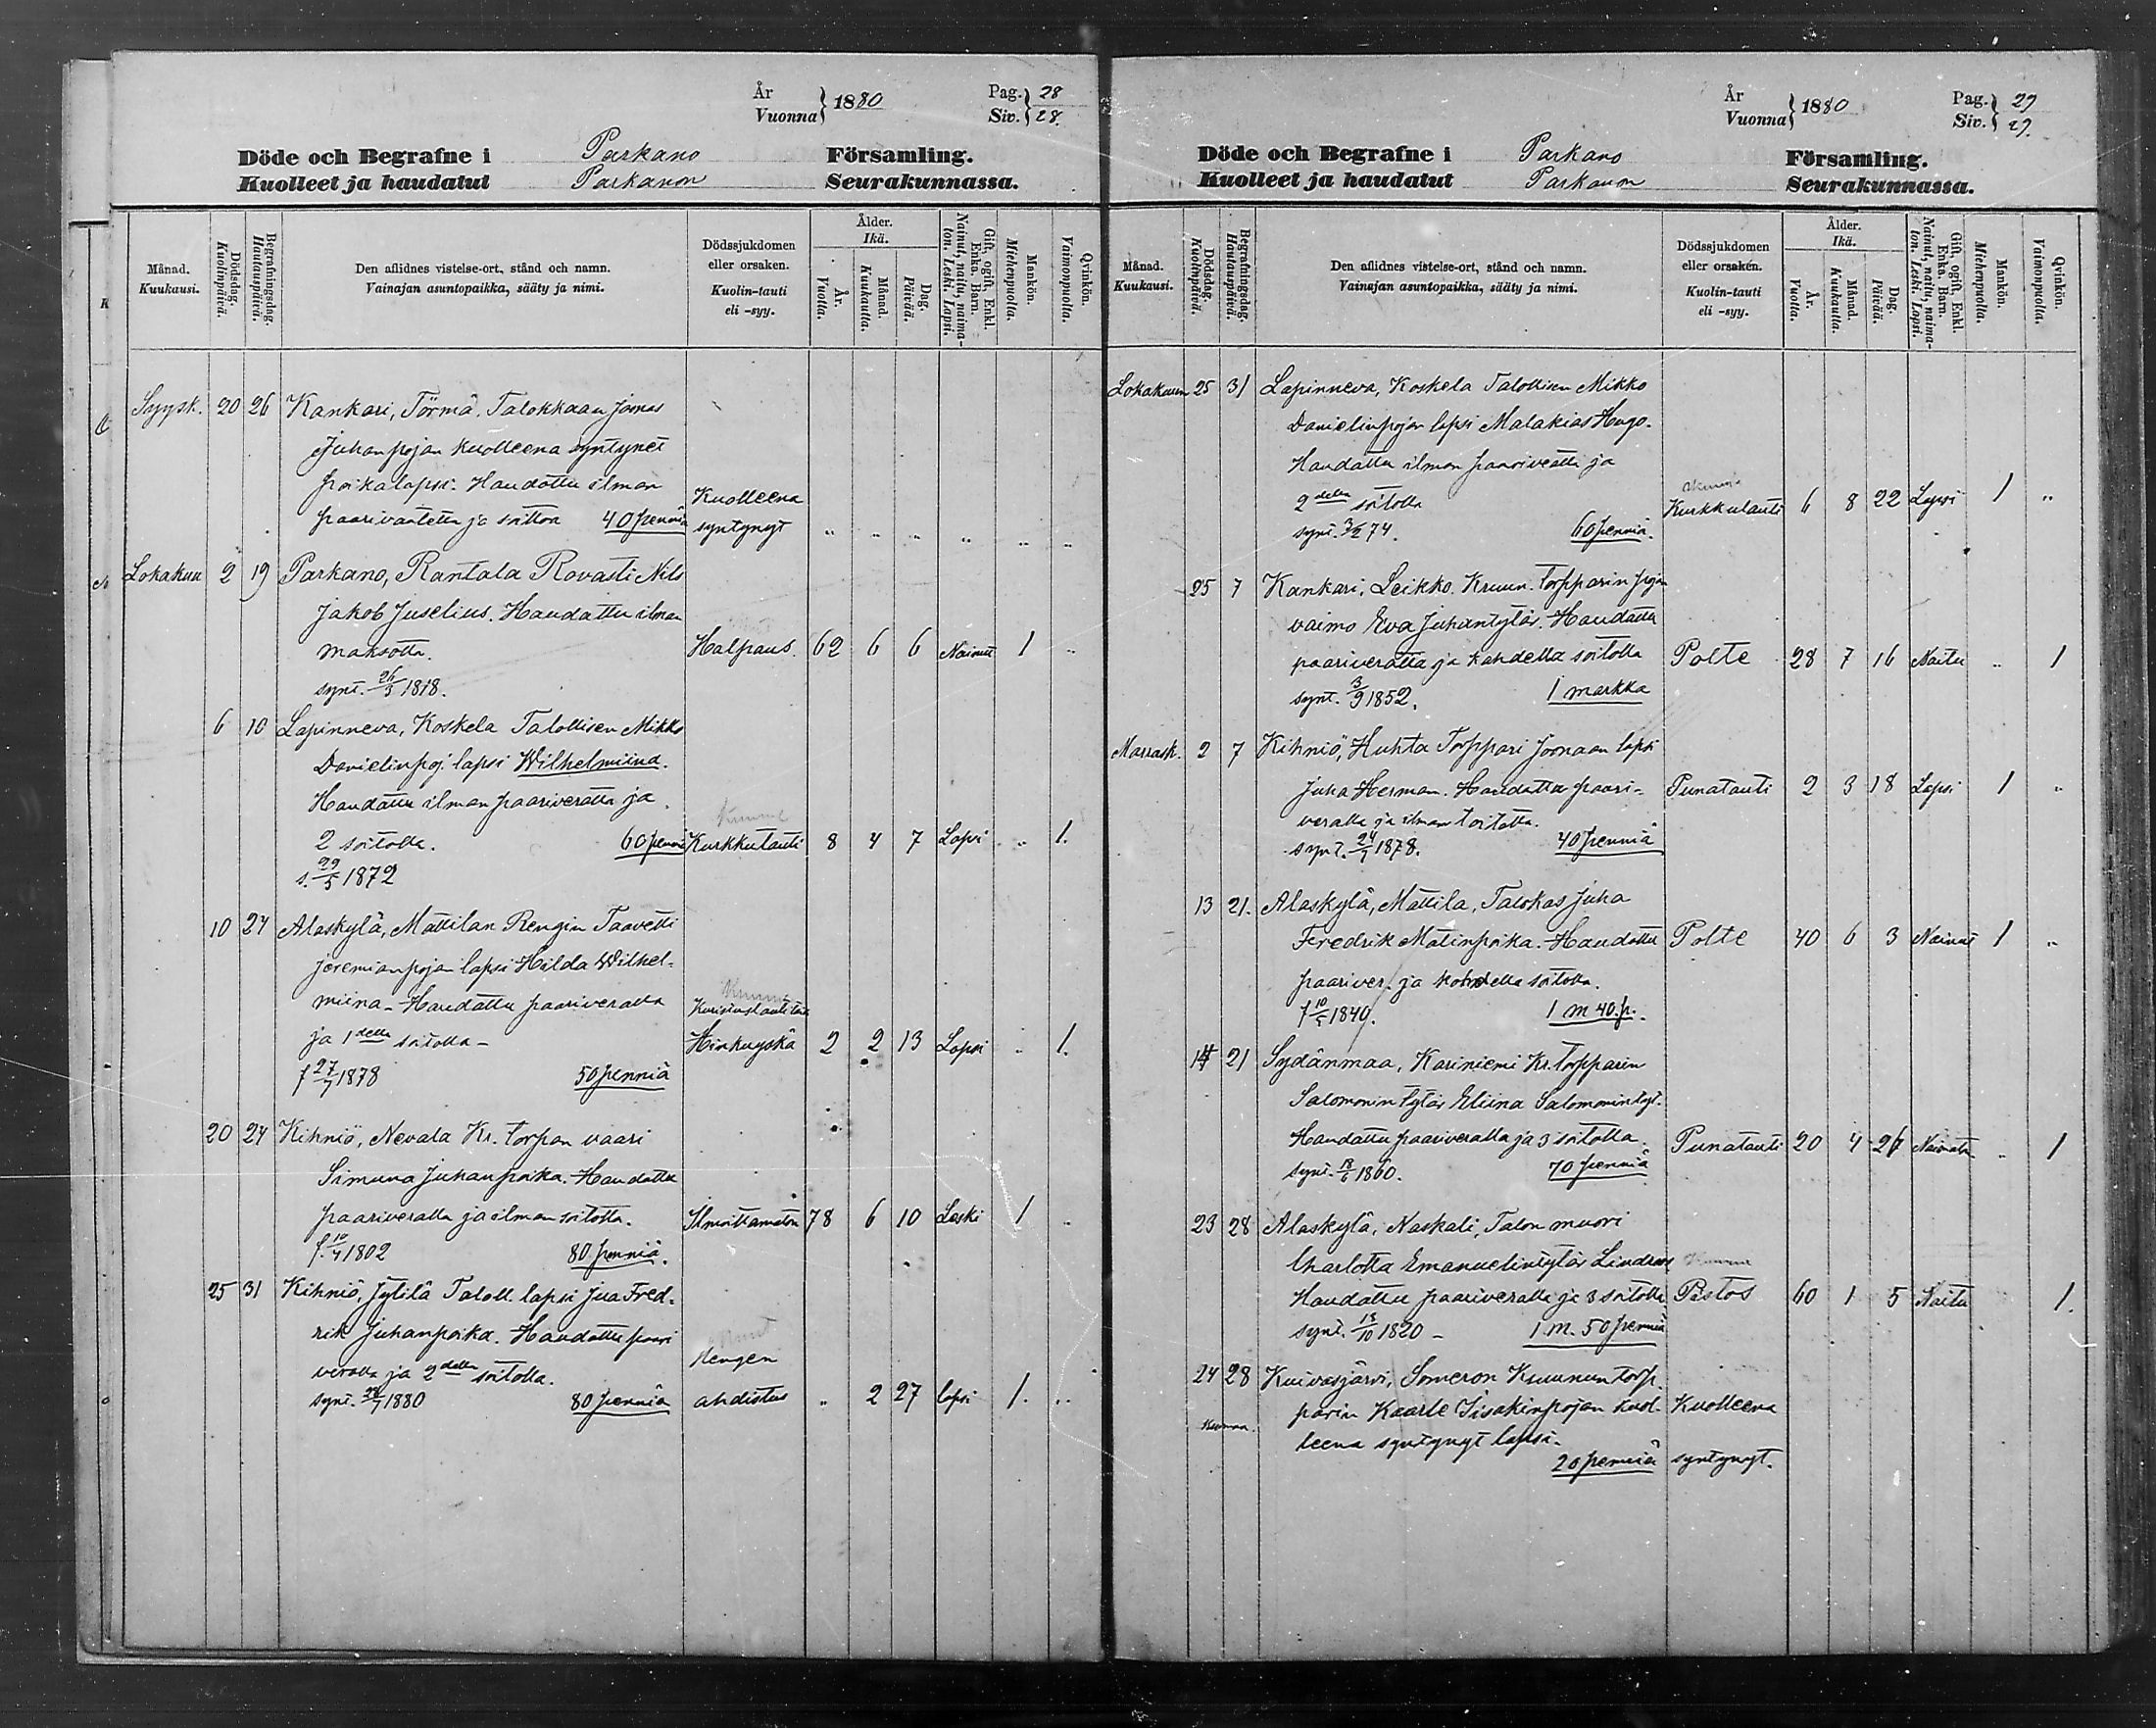 År
Vuonna } 1880
Pag. 28
Siv. 28.
Döde och Begrafne i Parkano Församling.
Kuolleet ja haudatut Parkanon Seurakunnassa.
Månad. Kuukausi.
Dödsdag. Kuolinpäivä.
Begrafningsdag. Hautauspäivä.
Den aflidnes vistelse-ort, stånd och namn.
Vainajan asuntopaikka, sääty ja nimi.
Dödssjukdomen eller orsaken.
Kuolin-tauti eli -syy.
Ålder. Ikä.
År. Vuotta.
Månad. Kuukautta.
Dag. Päivää.
Gift, ogift, Enkl. Enka. Barn.
Nainut, naitu, naimaton. Leski. Lapsi.
Mankön. Miehenpuolia.
Qvinkön. Vaimonpuolia.
Syysk. 20 26 Kankari, Törmä, Talokkaan Joonas
Juhanpojan kuolleena syntynet
poikalapsi. Haudattu ilman Kuolleena
paarivaatetta ja soittoa 40 penniä syntynyt " " " " " "
Lokakuu 2 19 Parkano, Rantala Rovasti Nils
Jakob Juselius. Haudattu ilman
maksotta. Halpaus. 62 6 6 Nainut 1 "
synt. 26/3 1818.
6 10 Lapinneva, Koskela Talollisen Mikko
Danielinpoj. lapsi Wilhelmiina.
Haudattu ilman paariveratta ja
2 soitolla. 60 penniä Kurkkutauti 8 4 7 Lapsi " 1.
s. 29/5 1872
10 24 Alaskylä, Mattilan Rengin Taavetti
Jeremianpojan lapsi Hilda Wilhel-
miina - Haudattu paariveralla
ja 1della soitolla - Hinkuyskä 2 2 13 Lapsi " 1.
f 27/7 1878 50 penniä
20 24 Kihniö, Nevala Kr. torpan vaari
Simuna Juhanpoika. Haudattu
paariveralla ja ilman soitotta. Ilmoittamaton 78 6 10 Leski 1 "
f. 10/4 1802 80 penniä.
25 31 Kihniö, Jytilä Taloll. lapsi Jua Fred-
rik Juhanpoika. Haudattu paari
veralla ja 2della soitolla. Hengen
synt. 28/7 1880 80 penniä ahdistus " 2 27 lapsi 1. "
År
Vuonna } 1880
Pag. 29
Siv. 29.
Döde och Begrafne i Parkano Församling.
Kuolleet ja haudatut Parkanon Seurakunnassa.
Månad. Kuukausi.
Dödsdag. Kuolinpäivä.
Begrafningsdag. Hautauspäivä.
Den aflidnes vistelse-ort, stånd och namn.
Vainajan asuntopaikka, sääty ja nimi.
Dödssjukdomen eller orsaken.
Kuolin-tauti eli -syy.
Ålder. Ikä.
År. Vuotta.
Månad. Kuukautta.
Dag. Päivää.
Gift, ogift, Enkl. Enka. Barn.
Nainut, naitu, naimaton. Leski. Lapsi.
Mankön. Miehenpuolia.
Qvinkön. Vaimonpuolia.
Lokakuun 25 31 Lapinneva, Koskela Talollisen Mikko
Danielinpojan lapsi Malakias Hugo.
Haudattu ilman paariveatta ja
2della soitolla Kurkkutauti 6 8 22 Lapsi 1 "
synt. 3/2 74. 60 penniä.
25 7 Kankari, Leikko. Kruun. torpparin pojan
vaimo Eva Juhantytär. Haudattu
paariveralla ja kahdella soitolla Polte 28 7 16 Naitu " 1
synt. 3/9 1852. 1 markka
Marrask. 2 7 Kihniö, Huhta Torppari Joonaan lapsi
Juha Herman. Haudattu paari- Punatauti 2 3 18 Lapsi 1 "
veralla ja ilman soitotta.
synt. 24/7 1878. 40 penniä
13 21. Alaskylä, Mattila, Talokas Juha
Fredrik Matinpoika. Haudattu Polte 40 6 3 Nainut 1 "
paariver. ja kahdella soitolla.
f 10/5 1840. 1 m 40 p.
14 21 Sydänmaa, Kariniemi Kr. torpparin
Salomonin tytär Eliina Salomonintyt.
Haudattu paariveralla ja 3 soitolla. Punatauti 20 4 26 Naimaton " 1
synt. 18/6 1860. 70 penniä
23 28 Alaskylä, Naskali, Talon muori
Charlotta Emanuelintytär Lindroos
Haudattu paariveralla ja 3 soitolla Pistos 60 1 5 Naitu 1.
synt. 18/10 1820 - 1 m. 50 penniä
24 28 Kuivasjärvi, Someron Kruunun torp-
parin Kaarle Iisakinpojan kuol- Kuolleena
leena syntynyt lapsi.
20 penniä syntynyt.